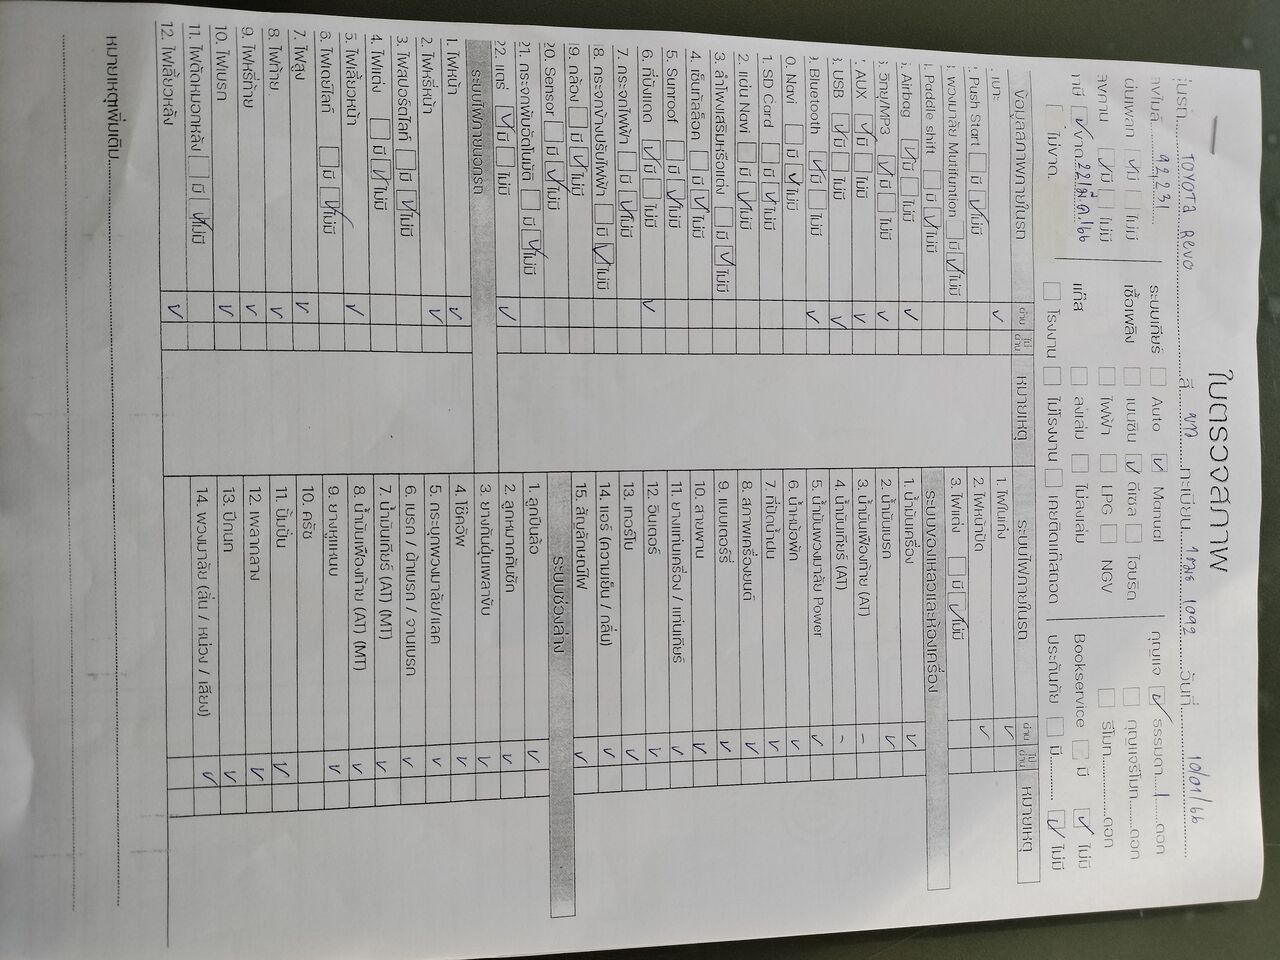 ใบตรวจสภาพ
รุ่นรถ TOYOTA Revo สี ขาว ทะเบียน 1092 วันที่ 10/01/66
เลขไมล์ 92,231 ระบบเกียร์ ☐ Auto ☑ Manual กุญแจ ☑ ธรรมดา 1 ดอก
☑ มี ☐ ไม่มี เชื้อเพลิง ☐ เบนซิน ☑ ดีเซล ☐ ไฮบริด ☐ กุญแจรีโมท ดอก
☑ มี ☐ ไม่มี ☐ ไฟฟ้า ☐ LPG ☐ NGV ☐ รีโมท ดอก
ภาษี ☑ ขาด 22/มี.ค./66 แก๊ส ☐ ลงเล่ม ☐ ไม่ลงเล่ม Bookservice ☐ มี ☑ ไม่มี
☐ ไม่ขาด ☐ โรงงาน ☐ ไม่โรงงาน ☐ เคยติดแก๊สถอด ประกันภัย ☐ มี ☑ ไม่มี
ข้อมูลสภาพภายในรถ ผ่าน ไม่ผ่าน หมายเหตุ
เบาะ ✓
Push Start ☐ มี ☑ ไม่มี
พวงมาลัย Mutifuntion ☐ มี ☑ ไม่มี
Paddle shift ☐ มี ☑ ไม่มี
Airbag ☑ มี ☐ ไม่มี ✓
วิทยุ/MP3 ☑ มี ☐ ไม่มี ✓
AUX ☑ มี ☐ ไม่มี ✓
USB ☑ มี ☐ ไม่มี ✓
Bluetooth ☑ มี ☐ ไม่มี ✓
0. Navi ☐ มี ☑ ไม่มี
1. SD Card ☐ มี ☑ ไม่มี
2. แผ่น Navi ☐ มี ☑ ไม่มี
3. ลำโพงเสริมหรือแต่ง ☐ มี ☑ ไม่มี
4. เซ็นทัลล็อค ☐ มี ☑ ไม่มี
5. Sunroof ☐ มี ☑ ไม่มี
6. ที่บังแดด ☑ มี ☐ ไม่มี ✓
7. กระจกไฟฟ้า ☐ มี ☑ ไม่มี
8. กระจกข้างปรับไฟฟ้า ☐ มี ☑ ไม่มี
19. กล้อง ☐ มี ☑ ไม่มี
20. Sensor ☐ มี ☑ ไม่มี
21. กระจกพับอัตโนมัติ ☐ มี ☑ ไม่มี
22. แตร ☑ มี ☐ ไม่มี ✓
ระบบไฟภายนอกรถ
1. ไฟหน้า ✓
2. ไฟหรี่หน้า ✓
3. ไฟสปอร์ตไลท์ ☐ มี ☑ ไม่มี
4. ไฟแต่ง ☐ มี ☑ ไม่มี
5. ไฟเลี้ยวหน้า ✓
6. ไฟเดย์ไลท์ ☐ มี ☑ ไม่มี
7. ไฟสูง ✓
8. ไฟท้าย ✓
9. ไฟหรี่ท้าย ✓
10. ไฟเบรก ✓
11. ไฟตัดหมอกหลัง ☐ มี ☑ ไม่มี
12. ไฟเลี้ยวหลัง ✓
ระบบไฟภายในรถ ผ่าน ไม่ผ่าน หมายเหตุ
1. ไฟในเก๋ง ✓
2. ไฟหน้าปัด ✓
3. ไฟแต่ง ☐ มี ☑ ไม่มี
ระบบของเหลวและห้องเครื่อง
1. น้ำมันเครื่อง ✓
2. น้ำมันเบรก ✓
3. น้ำมันเฟืองท้าย (AT) -
4. น้ำมันเกียร์ (AT) -
5. น้ำมันพวงมาลัย Power ✓
6. น้ำหม้อพัก ✓
7. ที่ปัดน้ำฝน ✓
8. สภาพเครื่องยนต์ ✓
9. แบตเตอร์รี่ ✓
10. สายพาน ✓
11. ยางแท่นเครื่อง / แท่นเกียร์ ✓
12. อินเตอร์ ✓
13. เทอร์โบ ✓
14. แอร์ (ความเย็น / กลิ่น) ✓
15. สัญลักษณ์ไฟ ✓
ระบบช่วงล่าง
1. ลูกปืนล้อ ✓
2. ลูกหมากคันชัก ✓
3. ยางกันฝุ่นเพลาขับ ✓
4. โช๊คอัพ ✓
5. กระปุกพวงมาลัย/แลค ✓
6. เบรก / ผ้าเบรก / จานเบรก ✓
7. น้ำมันเกียร์ (AT) (MT) ✓
8. น้ำมันเฟืองท้าย (AT) (MT) ✓
9. ยางแหนบ ✓
10. ครัช
11. ปั้มปั่น ✓
12. เพลากลาง ✓
13. ปีกนก ✓
14. พวงมาลัย (ลื่น / หน่วง / เสียง) ✓
หมายเหตุเพิ่มเติม